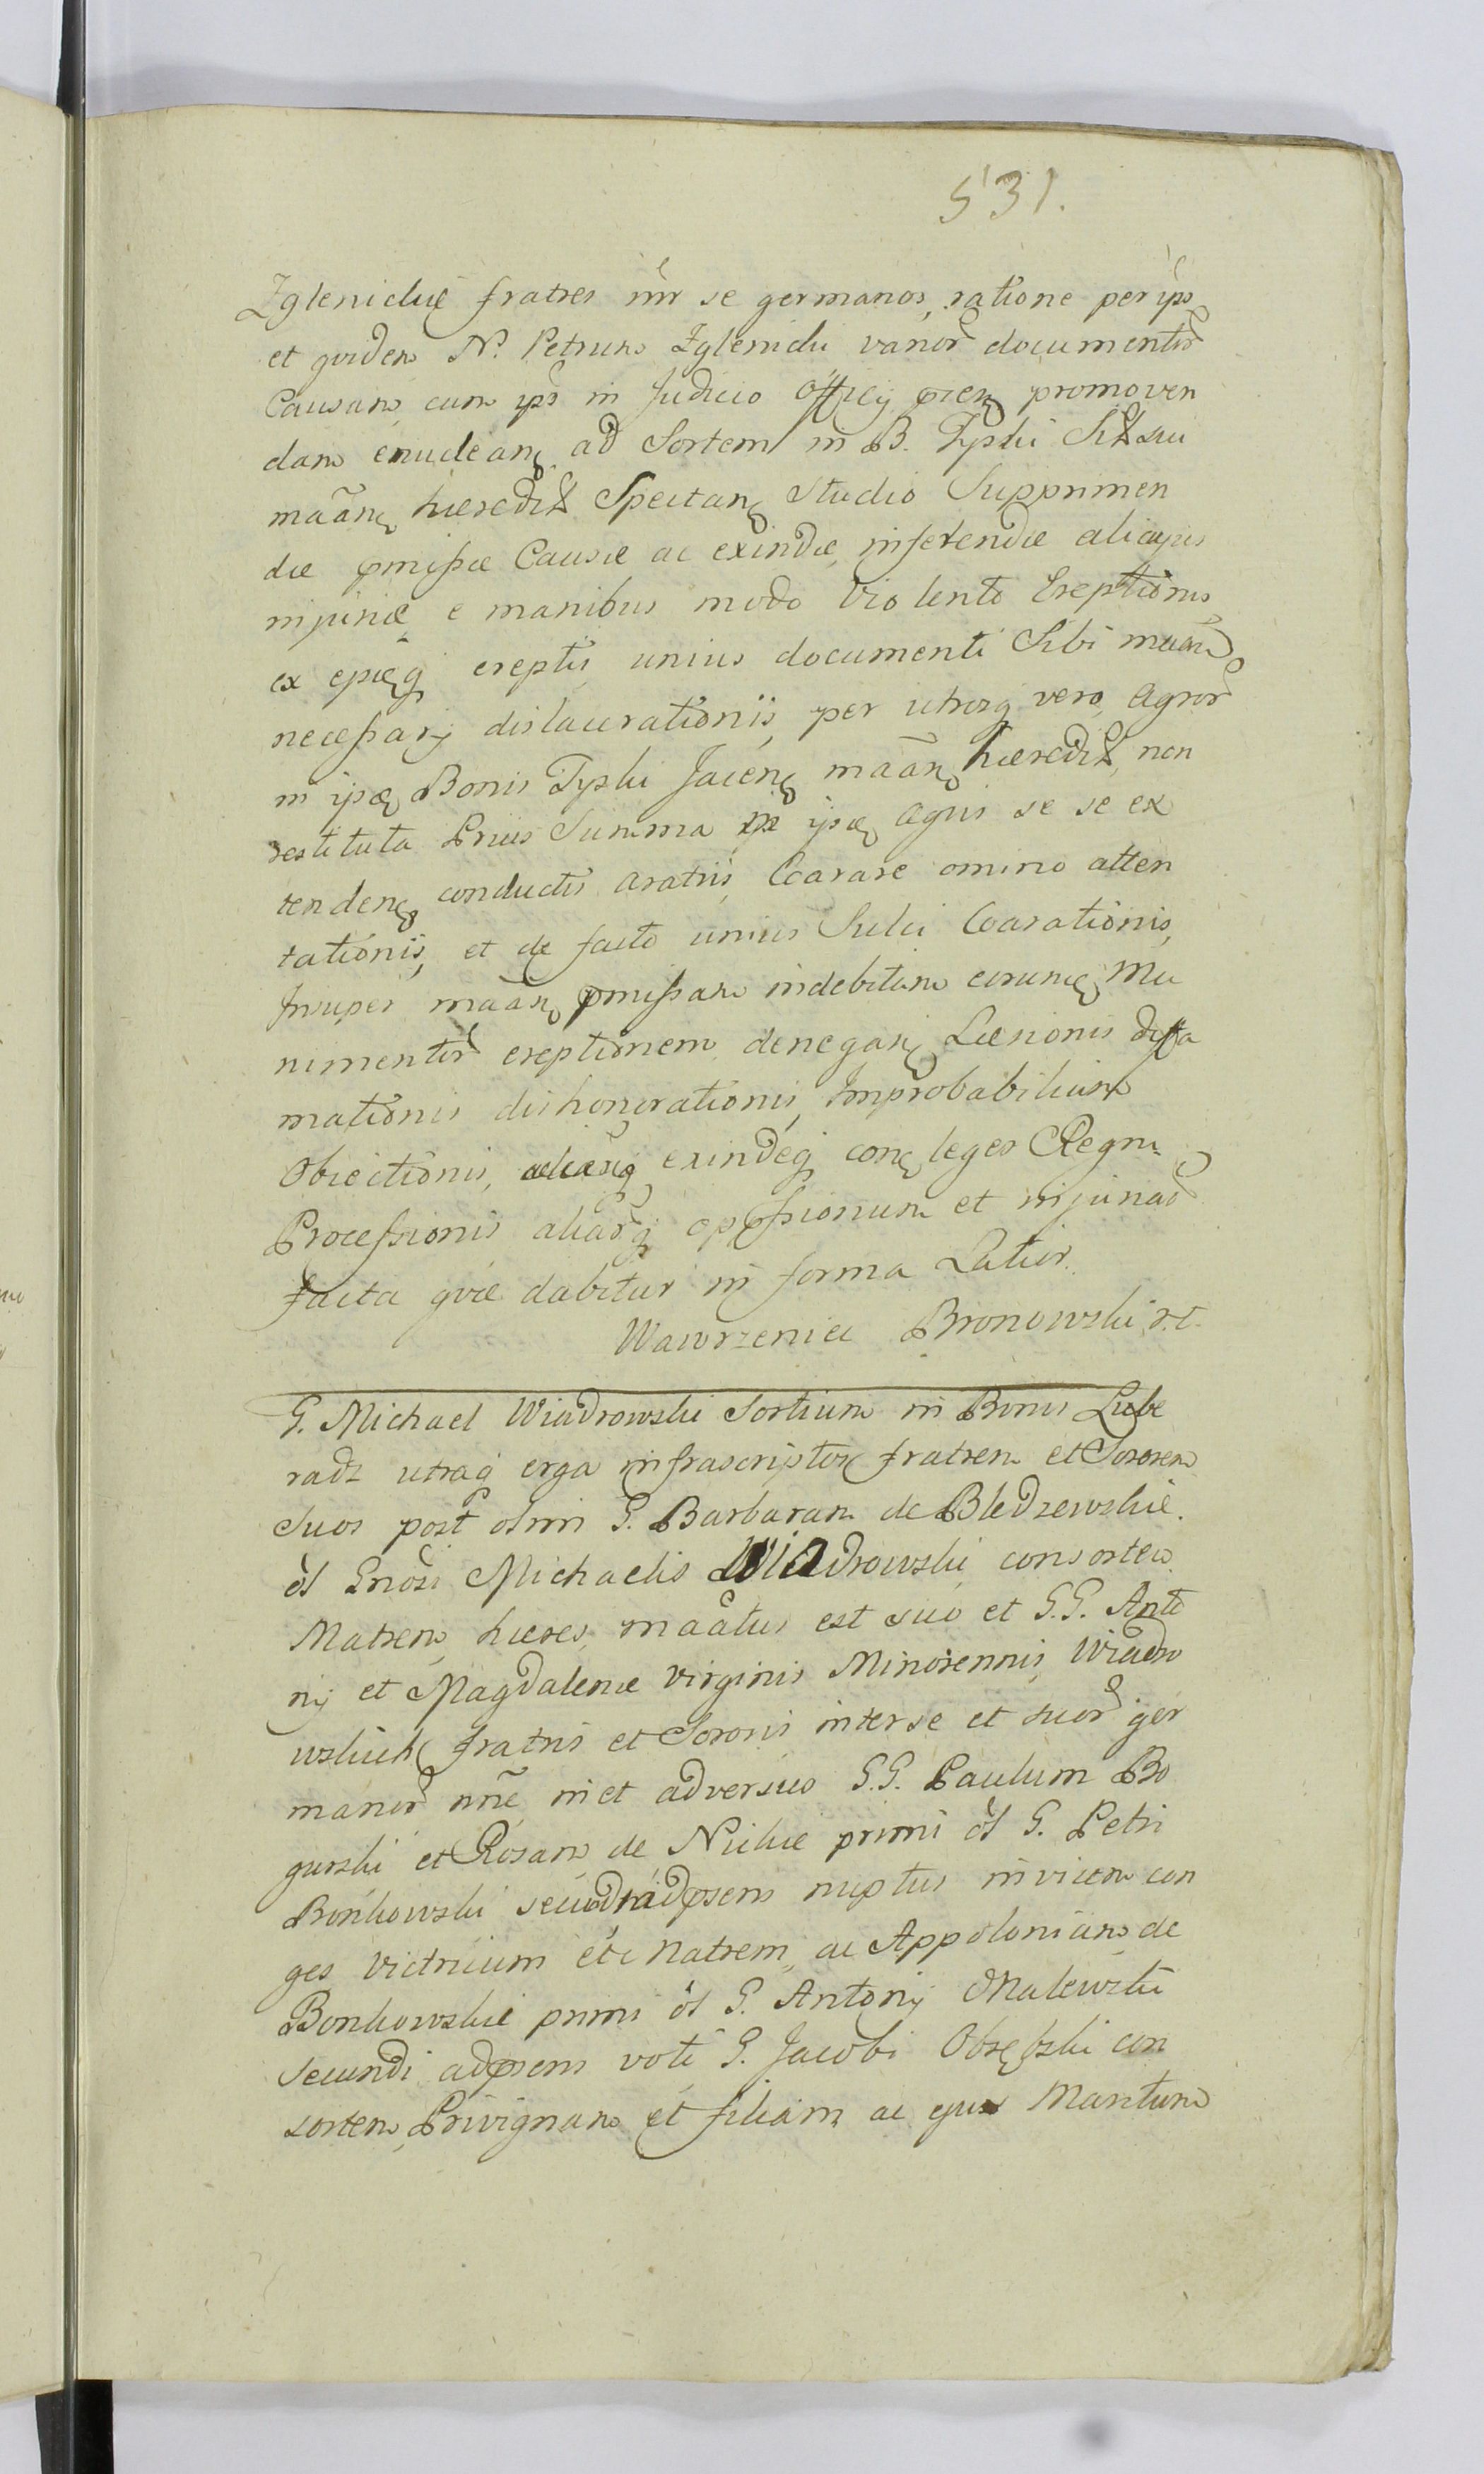 531.
Zglenickie fratres intr se germanos, ratione per ips
et quidem N. Petrum Zglenicki varior documentor
Causam cum ips in Judicio Officij pręn promoven
dam enudean ad Sortem in B. Tyski Sibi seu
maãn hæredit Spectan Studio Supprimen
dæ pmissæ Causæ ac exinde inferendæ alicujus
injuriæ e manibus modo Violento Ereptionis
ex epieq ereptis unius documenti Sibi maãn
necessarij dislacerationis, per utrosq vero Agror
in ipsæ Bonis Tyski Jacen maãn hæredit, non
restituta Prius Summa ipsæ Agris se se ex
tenden conductis aratris, Coarare omnino atten
tationis, et de facto unius Sulci Coarationis,
Insuper maãn pmissam indebitam eorum Mu
nimentor ereptionem denegan Læsionis diffa
mationis dishonorationis, Improbabilium
Obiectionis, exindeq con leges Regni
Processionis aliarq oppssionum et injuriar
facta quæ dabitur in forma Latior.
Wawrzeniec Bronowski r.t.
G. Michael Wiadrowski Sortium in Bonis Lube
radz utraq erga infrascriptos fratrem et Sororem
Suos post olim G. Barbaram de Bledzewskie.
ol Gnosi Michaelis Wiadrowski consortem
Matrem hæres, maãtus est suo et G.G. Anto
nij et Magdalenæ virginis Minorennis Wiadro
wskich fratris et Sororis inter se et suor ger
manor nne in et adversus G.G. Paulum Bo
gurski et Rosam de Nickie primi ol G. Petri
Bońkowski secundi adpsens nuptus invicem con
ges victricum etc Natrem, ac Appoloniam de
Bonkowskie primi ol G. Antonij Malewski
secundi adpsens voti G. Jacobi Obrębski con
sortem Privignam et filiam ac ejus Maritum